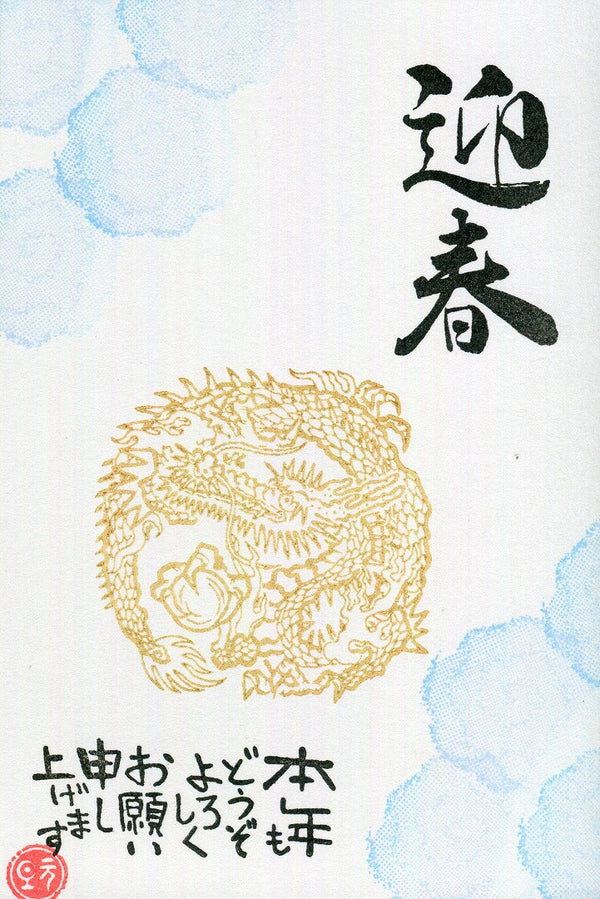 迎春
本年も
どうぞ
よろしく
お願い
申し
上げます